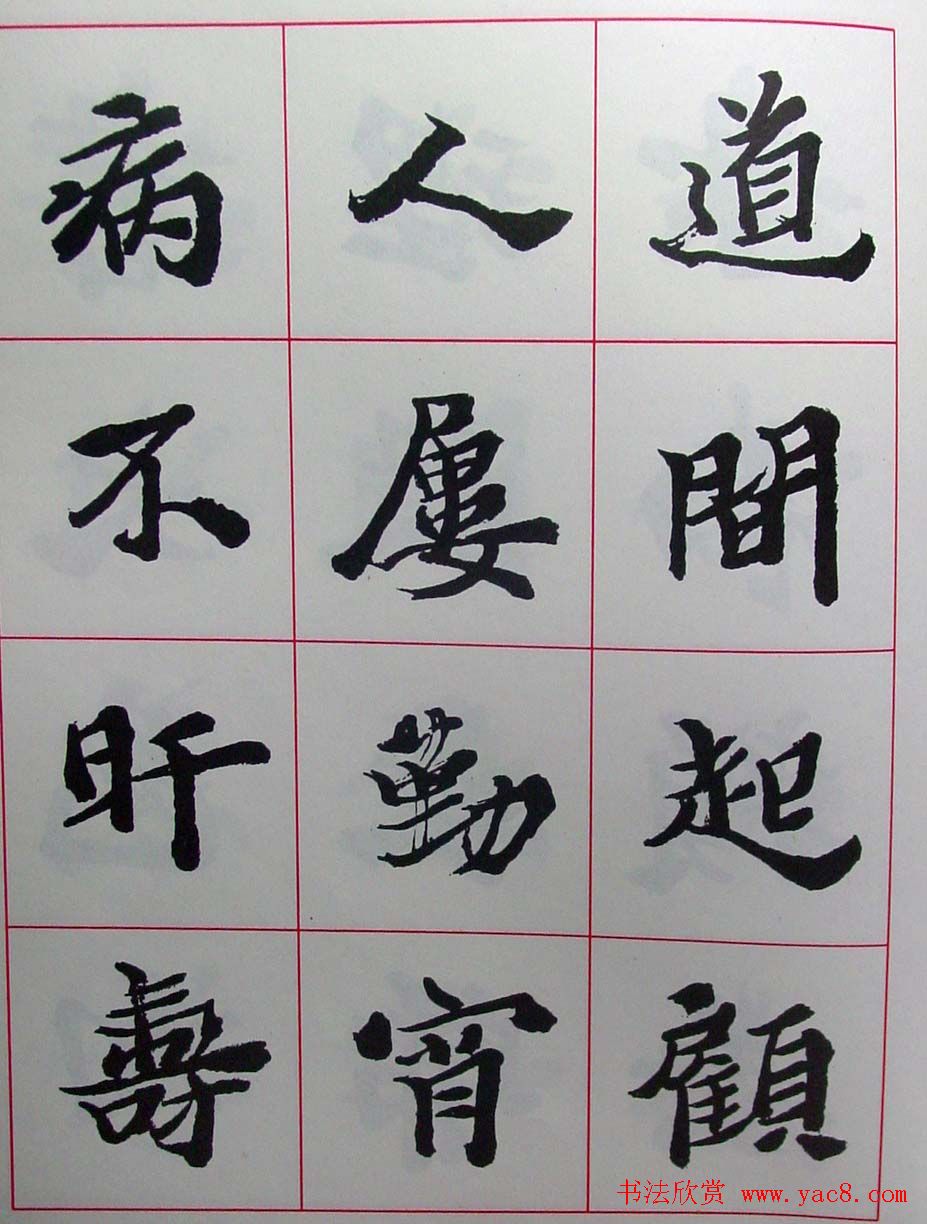 道間起顧
人屢勤宵
病不昕壽
书法欣赏 www.yac8.com